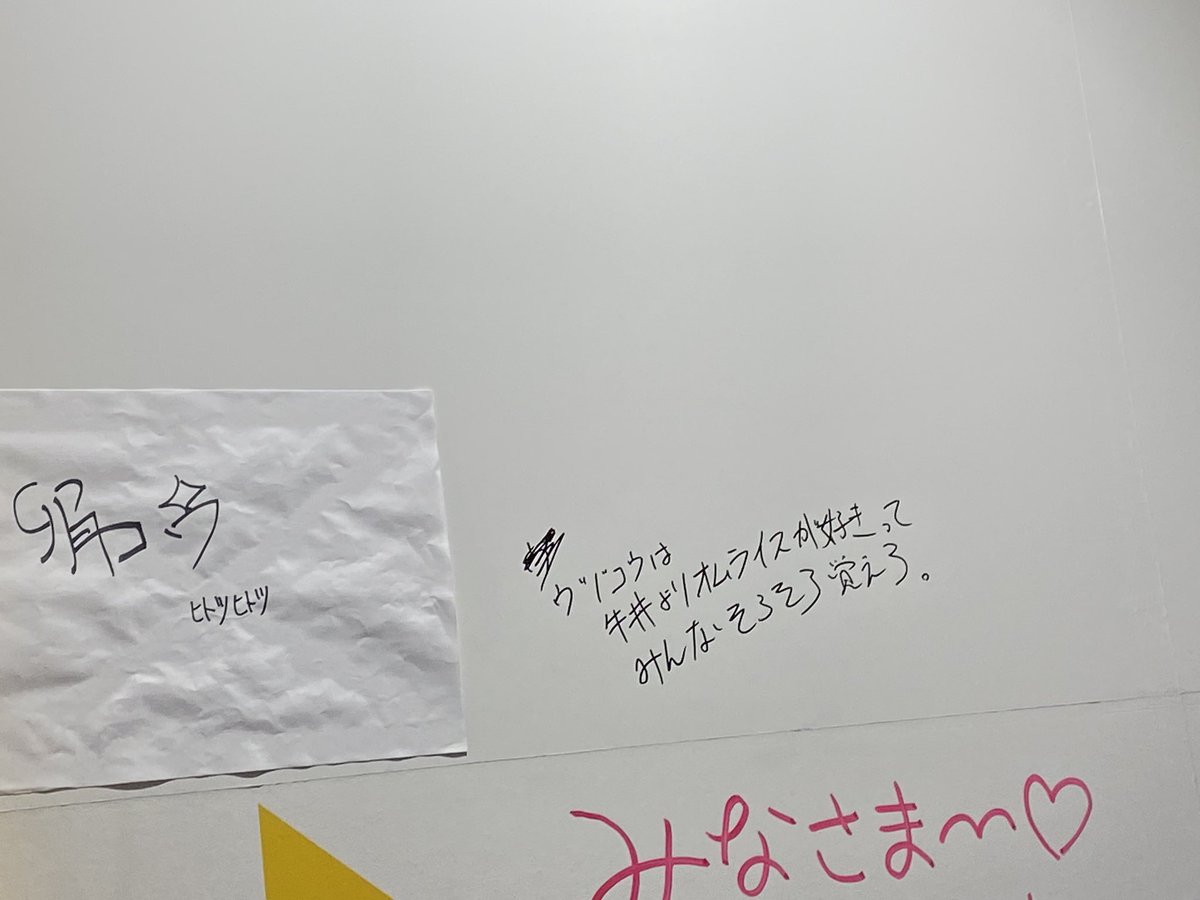 ヒトツヒトツ
ヴドコウは
牛丼よりオムライスが好きって
みんなそろそろ覚えろ。
みなさま〜♡